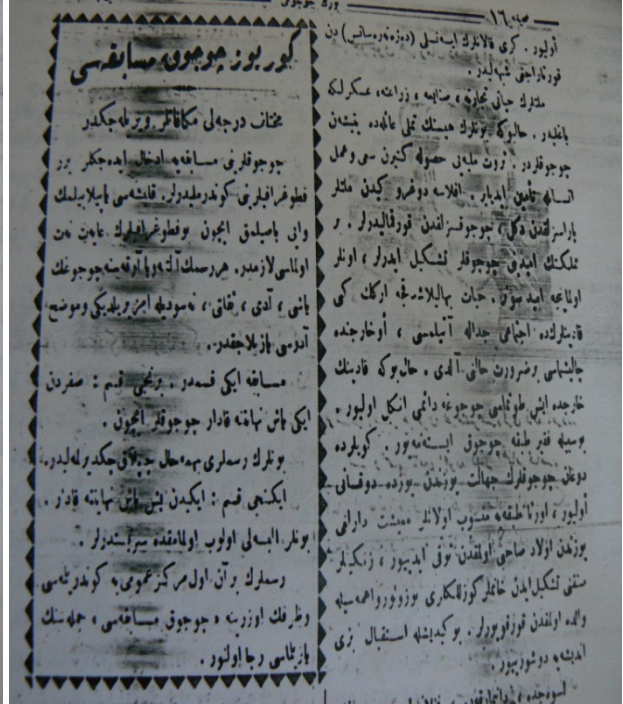 صحيفه ١٦
أوليور . كرى قالانلرك ايسه نسلى (ده‌ژه‌نه‌ره‌سانس) دن
قورتاراجغى شبهه‌ليدر .
ملتلرك حياتى تجارته ، صنايعه ، زراعته ، عسكرلكه
باغليدر . حالبوكه بونلرك هپسنك تملى عائله‌ده يتيشن
چوجوقلردر . ثروت مليه‌يى حصوله كتيرن سعى و عمل
انسانله تأمين ايديلير . افلاسه دوغرو كيدن ملتلر
پاراسزلقدن دكل ، چوجوقسزلقدن قورقماليدرلر . بر
مملكتك اميدينى چوجوقلر تشكيل ايدرلر ، اونلر
اولماينجه اميد سونر . حيات بهاليلاشدقجه اركك كبى
قادينلركده اجتماعى جداله آتيلمسى ، أو خارجنده
چاليشماسى بر ضرورت حالنى آلدى . حال بوكه قادينك
خارجده ايش طوتماسى چوجوغه دائمى انكل اوليور .
بوسببله فقير طبقه چوجوق ايسته‌مه‌يور . كويلرده
دوغان چوجوقلرك جهالت يوزندن يوزده دوقسانى
أوليور ، اورتا طبقه‌يه منسوب اولانلر معيشت دارلغى
يوزندن اولاد صاحبى اولمقدن توقى ايدييور ، زنكينلر
صنفنى تشكيل ايدن خانملر كوزللكلرى بوزولور واهمه‌سيله
والده اولمقدن قورقويورلر . بو كيديشله استقبال بزى
انديشه‌يه دوشوررييور .
كوربوز چوجوق مسابقه‌سى
مختلف درجه‌لى مكافاتلر ويريله‌جكدر
چوجوقلرينى مسابقه‌يه ادخال ايده‌جكلر برر
فطوغرافيلرينى كوندرمليدرلر. قليشه‌سى ياپيلابيلمك
وايى باصيلمق ايچون بو فطوغرافيلرك غايت نت
اولماسى لازمدر. هر رسمك آلتنه ويا آرقه‌سنه چوجوغك
ياشى ، آدى ، ثقلتى ، نه سودله امزيريلديكى و موضح
آدرسى يازيلاجقدر.
مسابقه ايكى قسمدر . برنجى قسم : صفردن
ايكى ياش نهايتنه قادار چوجوقلر ايچون .
بونلرك رسملرى بهمه‌حال چيپلاق چكديرمه‌ليدر.
ايكنجى قسم : ايكيدن بش ياش نهايتنه قادار .
بونلر البسه‌لى اولوب اولمامقده سربستدرلر .
رسملرك بر آن اول مركز عمومى‌يه كوندرلمسى
و ظرفك اوزرينه « چوجوق مسابقه‌سى » جمله‌سنك
يازيلماسى رجا اولنور .